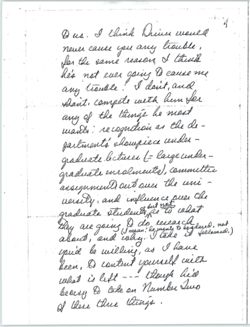 D us. I think Dunn would
never cause you any trouble,
for the same reason I think
he's not ever going to cause me
any trouble: I don't, and
don't, compete with him for
any of the things he most
wants: recognition as the de-
partment's showpiece under-
graduate lecturer (= large under-
graduate enrolments), committee
assignments all over the uni-
versity, and influence over the
graduate students as to what
they are going to do research
about, and why. I take it
you'd be willing, as I have
been, to content yourself with
what is left --- though he'd
to take on Number Two
of these three things.